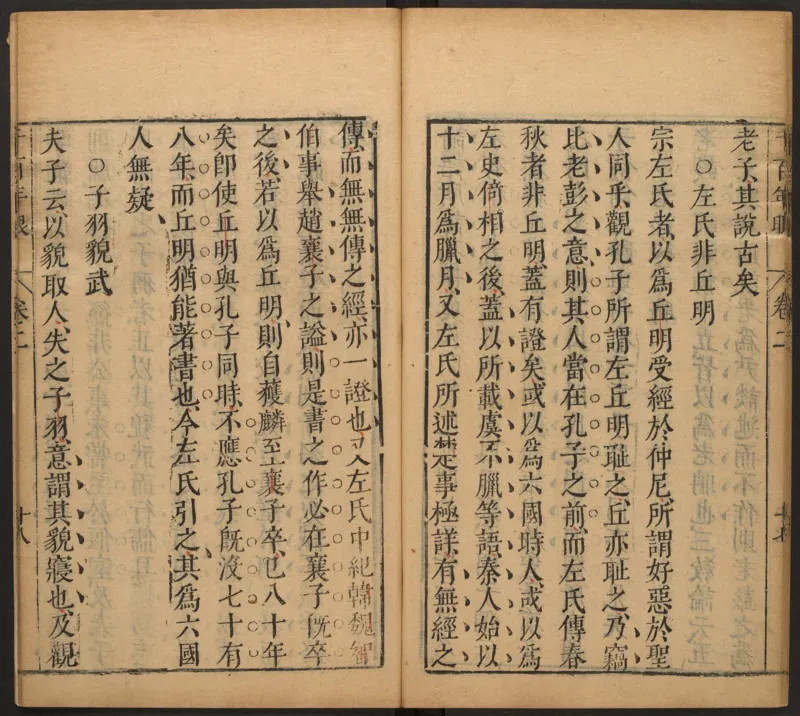 老子其說古矣
○左氏非丘明
宗左氏者以爲丘明受經於仲尼所謂好惡於聖
人同乎觀孔子所謂左丘明恥之丘亦恥之乃竊
比老彭之意則其人當在孔子之前而左氏傳春
秋者非丘明蓋有證矣或以爲六國時人或以爲
左史倚相之後蓋以所載虞不臘等語秦人始以
十二月爲臘月又左氏所述楚事極詳有無經之
傳而無無傳之經亦一證也又左氏中紀韓魏智
伯事舉趙襄子之謚則是書之作必在襄子既卒
之後若以爲丘明則自獲麟至襄子卒已八十年
矣卽使丘明與孔子同時不應孔子旣沒七十有
八年而丘明猶能著書也今左氏引之其爲六國
人無疑
○子羽貌武
夫子云以貌取人失之子羽意謂其貌寢也及觀
卷二
十八